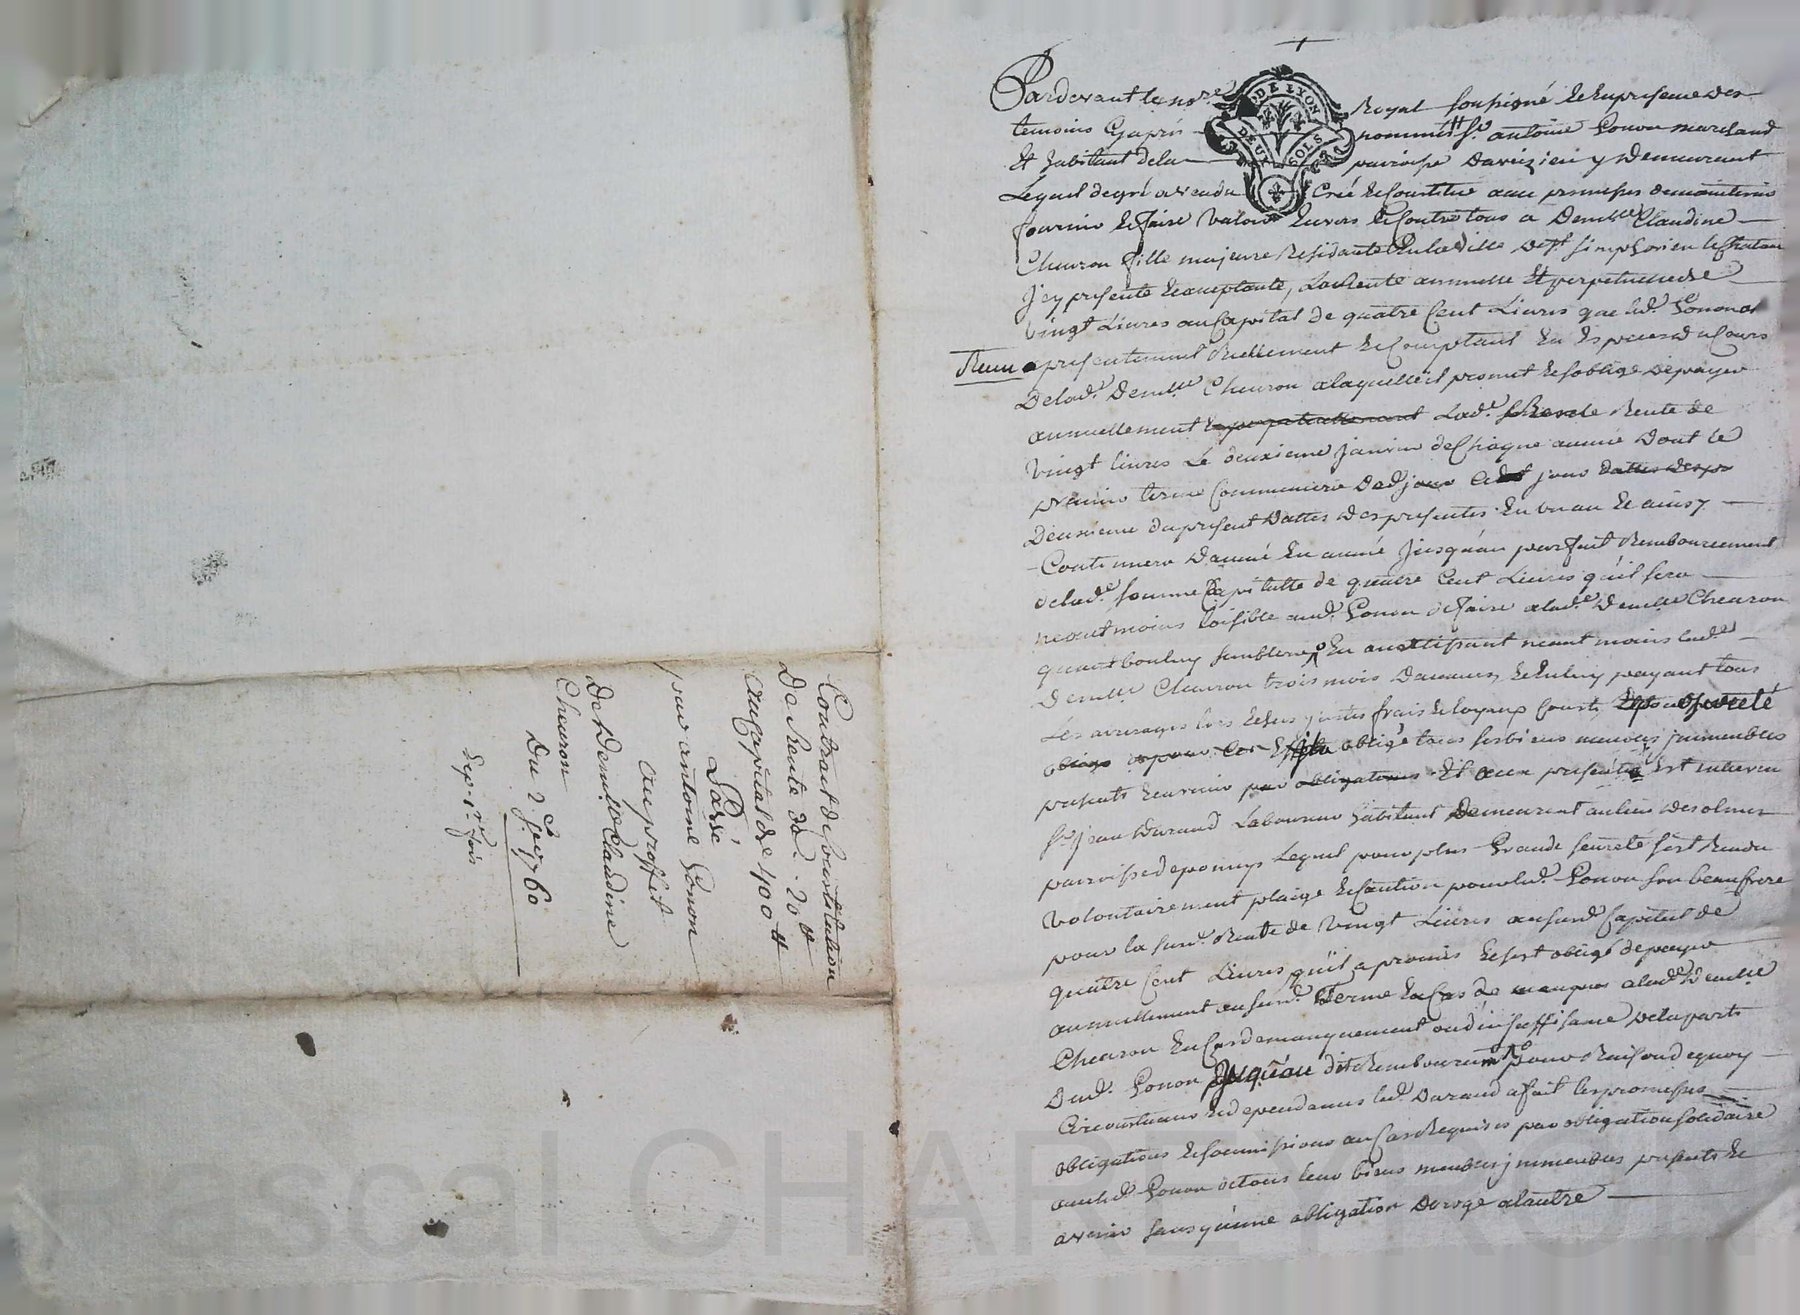 Contract de Constitution
De Rente de 20 ₶
au Capital de 400 ₶
Passé
par antoine Gonon
au proffit
De Demlle Claudine
Chearon
Du 2 Jer 1760
Exp. 1re fois
Pardevant le nore Royal soussigné et en presence des
temoins Cyaprés nommés fut Sr antoine Gonon marchand
et habitant de la parroisse daveizieu y Demeurant
Lequel de gré a vendu Creé et Constitué avec promesses de maintenir
fournir et faire valoir Envers et Contre tous a Demlle Claudine
Chearon fille majeure Residante En la ville de St simphorien le Chateau
Jcy presente et acceptante, La Rente annuelle et perpetuelle de
Vingt Livres au Capital de quatre Cent Livres que led. Gonon a
Receu presentement Reellement et Comptant En Especes du Cours
De lad. Demlle Chearon a laquelle il promet et s'oblige de payer
annuellement et perpetuellement Lad. Rente de
Vingt livres Le deuxieme janvier de Chaque année Dont le
premier terme Commencera jour
Deuxieme du present Dattes des presentes En un an et ainsy
Continuera D'année En année Jusqu'au parfait Remboursement
de lad. somme Capitalle de quatre Cent Livres qu'il sera
neantmoins loisible aud. Gonon de faire a lad. Demlle Chearon
quant bon luy semblera En avertissant neantmoins lad.
Demlle Chearon trois mois D'avance, et En luy payant tous
Les arrerages lors Echus justes frais et loyaux Couts,
obligé tous ses biens meubles immeubles
presents et avenir par obligations Et aux presentes Est intervenu
Sr Jean Durand Laboureur habitant Demeurant au lieu des olmes
parroisse de pomeys Lequel pour plus Grande seureté s'est Rendu
Volontairement plaige et Caution pour led. Gonon son beaufrere
pour la susd. Rente de Vingt Livres au susd. Capital de
quatre Cent Livres qu'il a promis et s'est obligé de payer
annuellement au susd. Terme En Cas de manquer a lad. Demlle
Chearon En Cas de manquement ou d'insuffisance de la part
Dud. Gonon Jusqu'au dit Remboursemt Pour Raison de quoy
Circonstances et dependances led. Durand a fait les promesses
obligations et soumissions au Cas Requises par obligation solidaire
avec led. Gonon de tous leur biens meubles immeubles presents et
avenir sans qu'une obligation Deroge a l'autre
DE LYON
DEUX SOLS
Pascal CHAREYRON